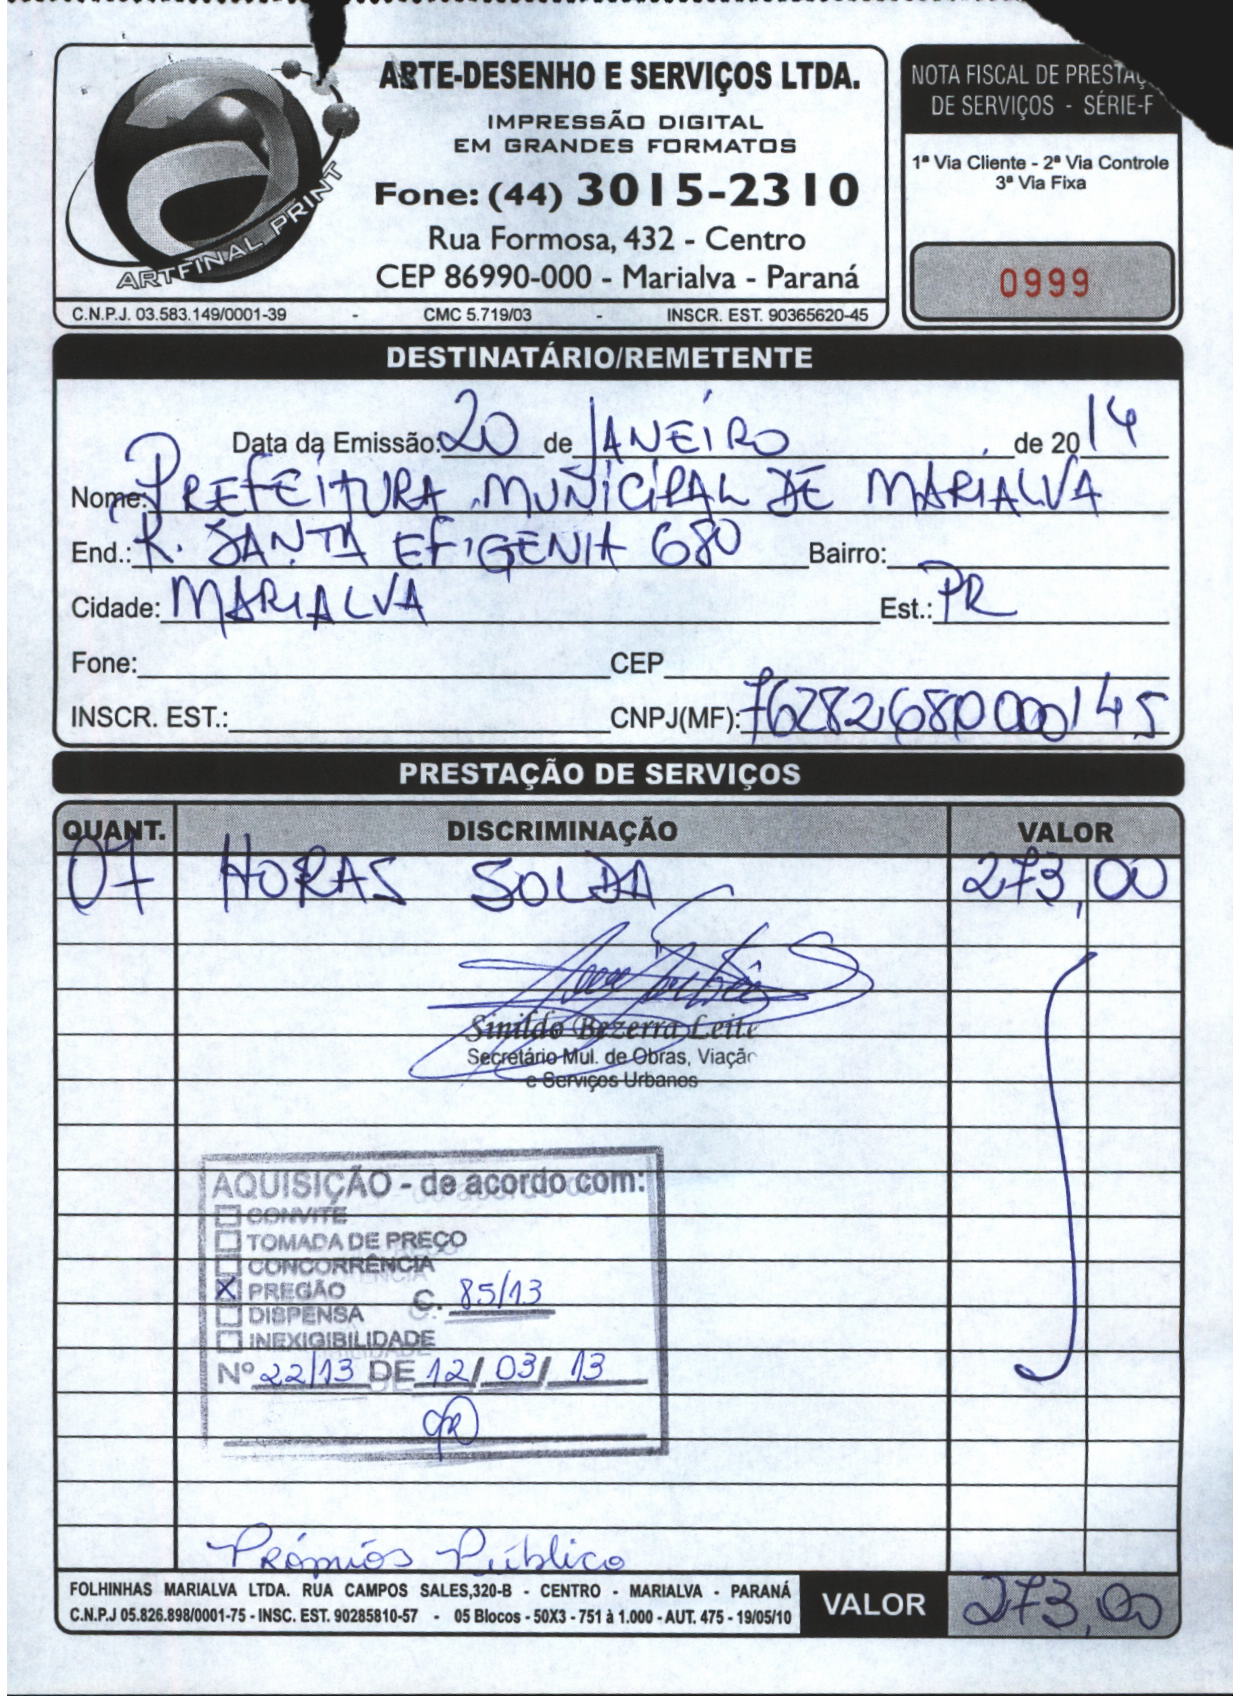 ARTE-DESENHO E SERVIÇOS LTDA.
IMPRESSÃO DIGITAL
EM GRANDES FORMATOS
Fone: (44) 3015-2310
Rua Formosa, 432 - Centro
CEP 86990-000 - Marialva - Paraná
ARTFINAL PRINT
C.N.P.J. 03.583.149/0001-39 - CMC 5.719/03 - INSCR. EST. 90365620-45
NOTA FISCAL DE
DE SERVIÇOS - SÉRIE-F
1ª Via Cliente - 2ª Via Controle
3ª Via Fixa
0999
DESTINATÁRIO/REMETENTE
Data da Emissão: 20 de JANEIRO de 2014
Nome: PREFEITURA MUNICIPAL DE MARIALVA
End.: R. SANTA EFIGENIA 680 Bairro:
Cidade: MARIALVA Est.: PR
Fone: CEP
INSCR. EST.: CNPJ(MF): 76282680000145
PRESTAÇÃO DE SERVIÇOS
QUANT. DISCRIMINAÇÃO VALOR
07 HORAS SOLDA 273,00
Sinildo Bezerra Leite
Secretário Mul. de Obras, Viação
e Serviços Urbanos
AQUISIÇÃO - de acordo com:
CONVITE
TOMADA DE PREÇO
CONCORRÊNCIA
X PREGÃO C. 85/13
DISPENSA
INEXIGIBILIDADE
Nº 22/13 DE 12/03/13
Próprios Público
FOLHINHAS MARIALVA LTDA. RUA CAMPOS SALES,320-B - CENTRO - MARIALVA - PARANÁ
C.N.P.J 05.826.898/0001-75 - INSC. EST. 90285810-57 - 05 Blocos - 50X3 - 751 à 1.000 - AUT. 475 - 19/05/10
VALOR 273,00